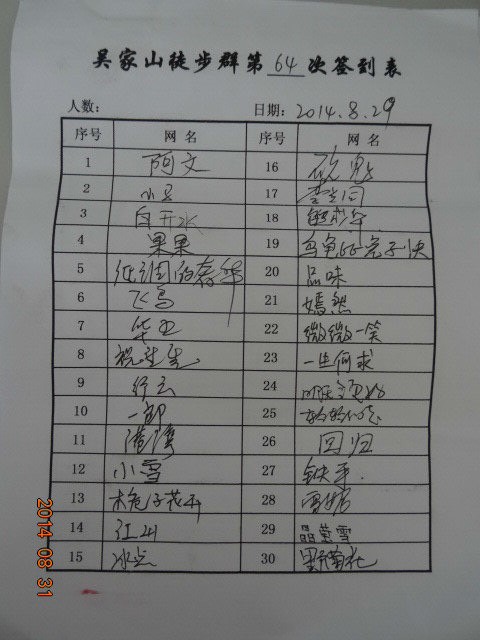 吴家山徒步群第 64 次签到表
人数： 日期：2014.8.29
序号 网 名 序号 网 名
1 阿文 16
2 17
3 白开水 18
4 果果 19 乌龟的兔子快
5 低调的奢华 20 品味
6 飞鸟 21 嫣然
7 华 22 微微一笑
8 祝 23 一生何求
9 行云 24
10 一郎 25
11 港湾 26 回归
12 小雪 27 铁平
13 栀子花开 28
14 江山 29 晶莹雪
15 冰点 30 野菊花
2014 08 31